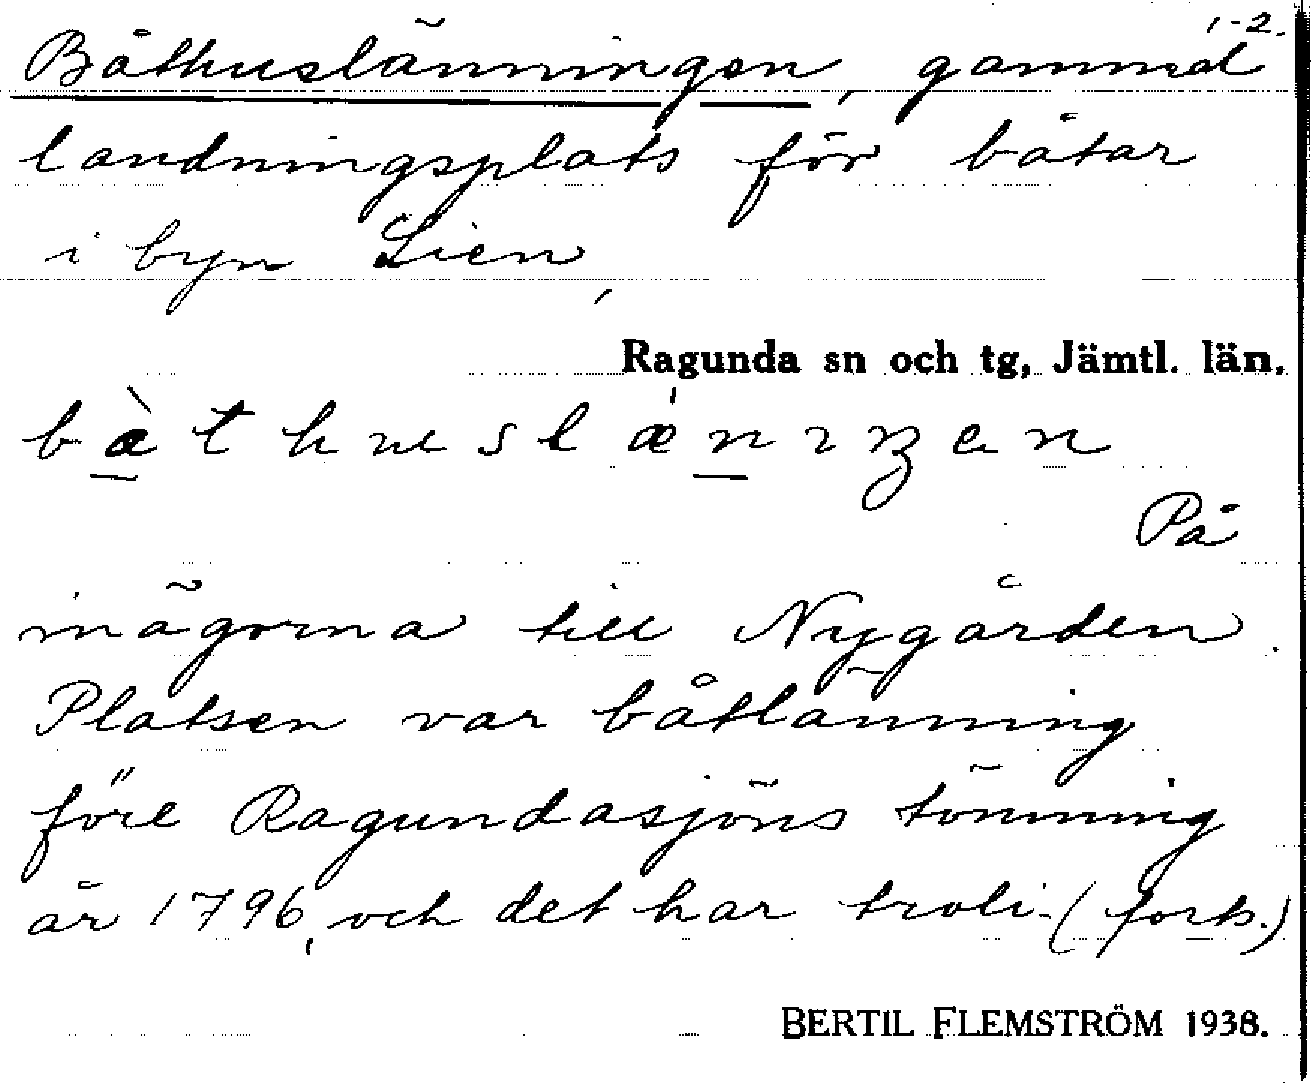 1-2.
Båthuslänningen, gammal
landningsplats för båtar
i byn Lien,
Ragunda sn och tg, Jämtl. län.
På
inägorna till Nygården.
Platsen var båtlänning
före Ragundasjöns tömning
år 1796, och det har troli- (forts.)
BERTIL FLEMSTRÖM 1938.